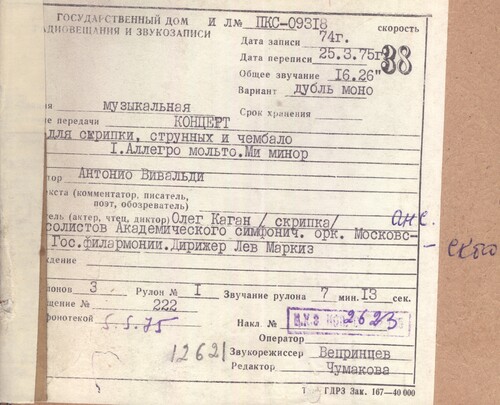 ГОСУДАРСТВЕННЫЙ ДОМ И Л№ ПКС-09318 скорость
АДИОВЕЩАНИЯ И ЗВУКОЗАПИСИ
38
Дата записи 74г.
Дата переписи 25.3.75г
Общее звучание 16.26"
Вариант дубль моно
музыкальная Срок хранения
ие передачи КОНЦЕРТ
для скрипки, струнных и чембало
I.Аллегро мольто.Ми минор
тор Антонио Вивальди
екста (комментатор, писатель,
поэт, обозреватель)
тель (актер, чтец, диктор) Олег Каган / скрипка/ анс.
солистов Академического симфонич. орк. Московс-
Гос.филармонии.Дирижер Лев Маркиз - ского
ждение
лонов 3 Рулон № I Звучание рулона 7 мин. 13 сек.
ещение № 222
фонотекой 5.5.75 Накл № 2623
Оператор
12621 Звукорежиссер Вепринцев
Редактор Чумакова
ГДРЗ Зак. 167—40 000